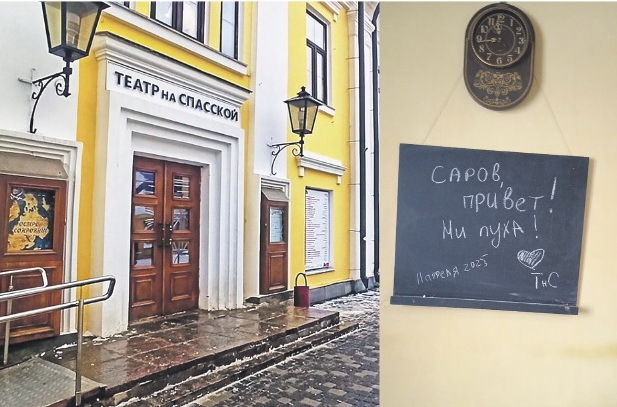 ТЕАТР НА СПАССКОЙ
ОСТРОВ
СОКРОВИЩ
САРОВ,
ПРИВЕТ!
НИ ПУХА!
11 апреля 2025
ТнС